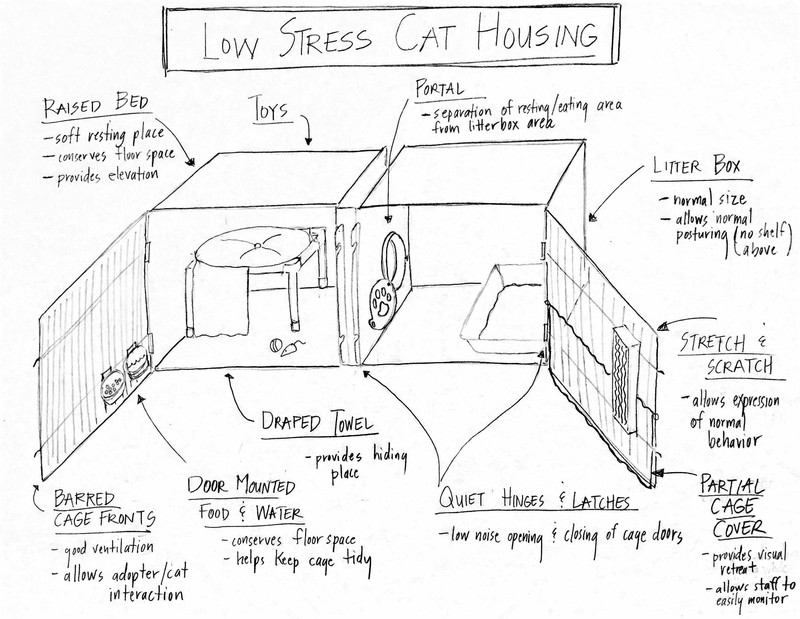 LOW STRESS CAT HOUSING
RAISED BED
- soft resting place
- conserves floor space
- provides elevation
TOYS
PORTAL
- separation of resting/eating area
from litterbox area
LITTER BOX
- normal size
- allows normal
posturing (no shelf
above)
STRETCH &
SCRATCH
- allows expression
of normal
behavior
DRAPED TOWEL
- provides hiding
place
BARRED
CAGE FRONTS
- good ventilation
- allows adopter/cat
interaction
DOOR MOUNTED
FOOD & WATER
- conserves floor space
- helps keep cage tidy
QUIET HINGES & LATCHES
- low noise opening & closing of cage doors
PARTIAL
CAGE
COVER
- provides visual
retreat
- allows staff to
easily monitor